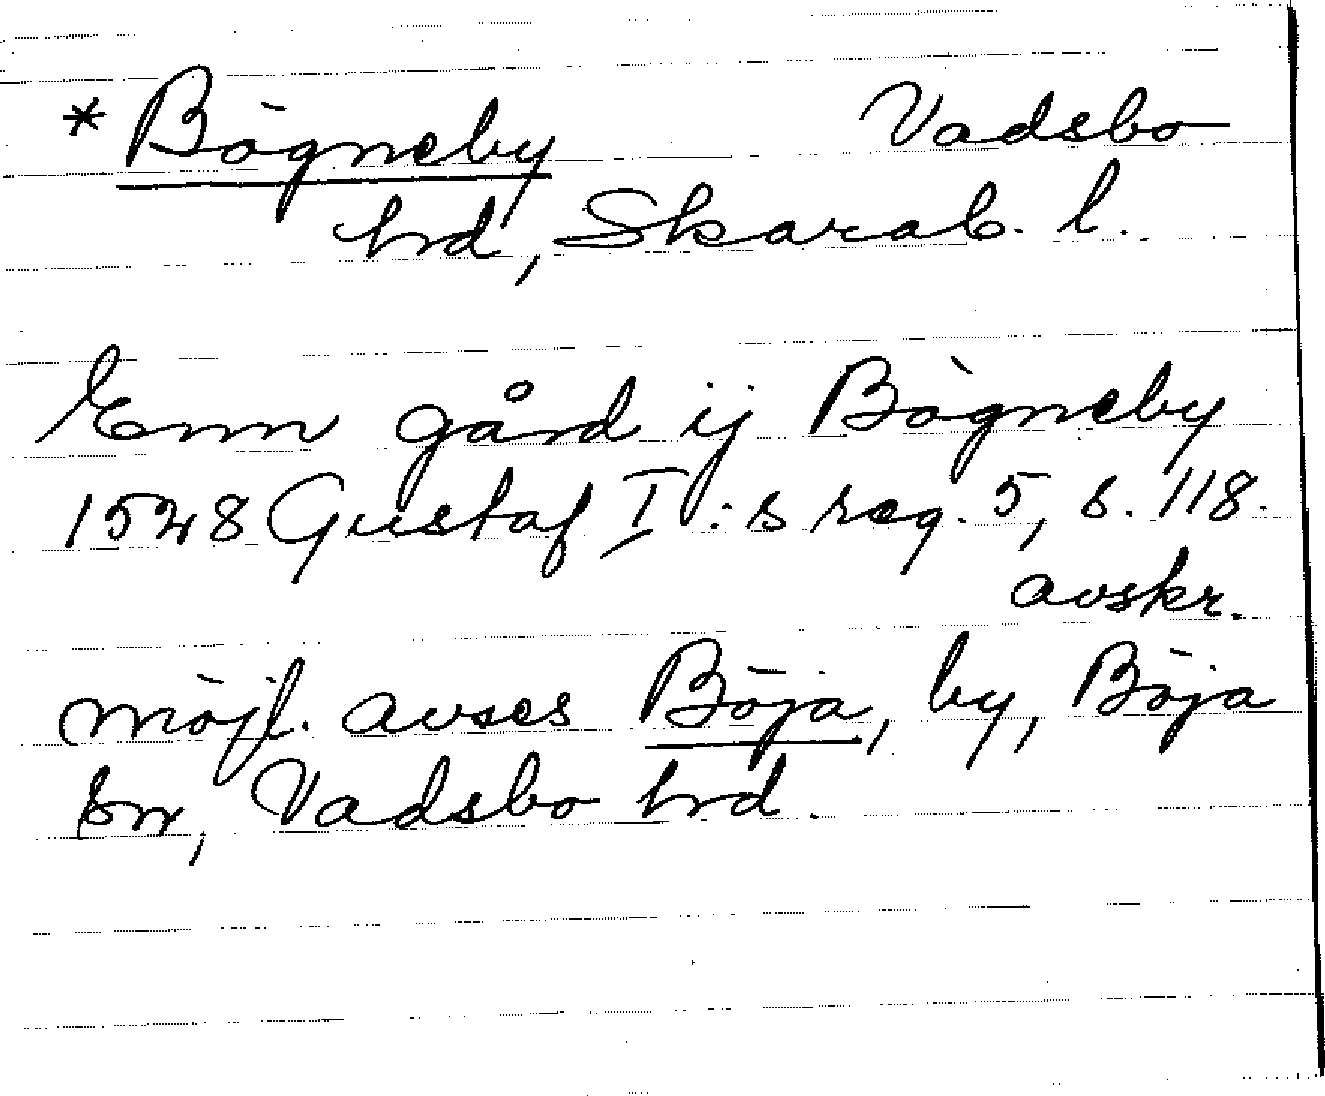 * Bögneby Vadsbo
hrd, Skarab. l.
Enn gård ij Bögneby
1528 Gustaf I:s reg. 5, s. 118.
avskr.
möjl. avses Böja, by, Böja
sn, Vadsbo hrd.